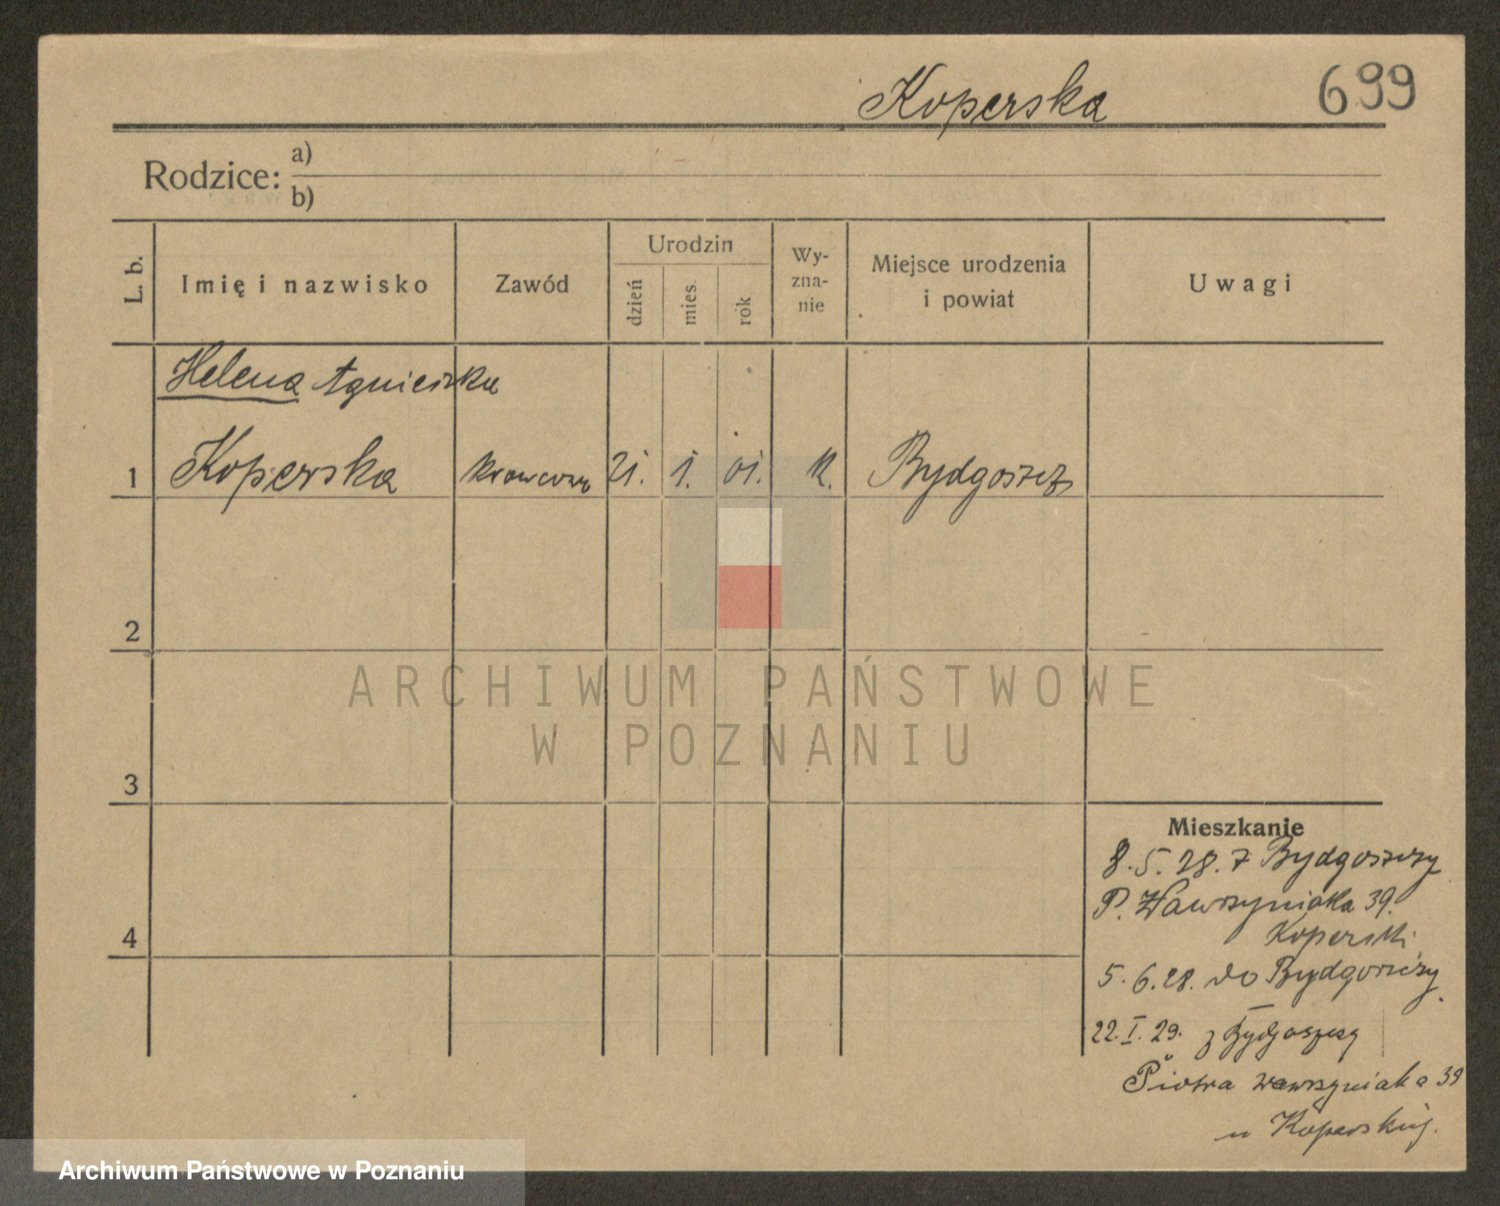 Koperska
699
Rodzice: a)
b)
L. b.
Imię i nazwisko
Zawód
Urodzin
dzień
mies.
rok
Wy-
zna-
nie
Miejsce urodzenia
i powiat
Uwagi
Helena Agnieszka
1 Koperska krawcowa 21. 1. 01. k. Bydgoszcz
2
ARCHIWUM PAŃSTWOWE
W POZNANIU
3
Mieszkanie
8. 5. 28. z Bydgoszczy
P. Wawrzyniaka 39.
Koperski
4
5. 6. 28. do Bydgoszczy.
22. I. 29. z Bydgoszczy
Piotra Wawrzyniaka 39
u Koperskiej.
Archiwum Państwowe w Poznaniu